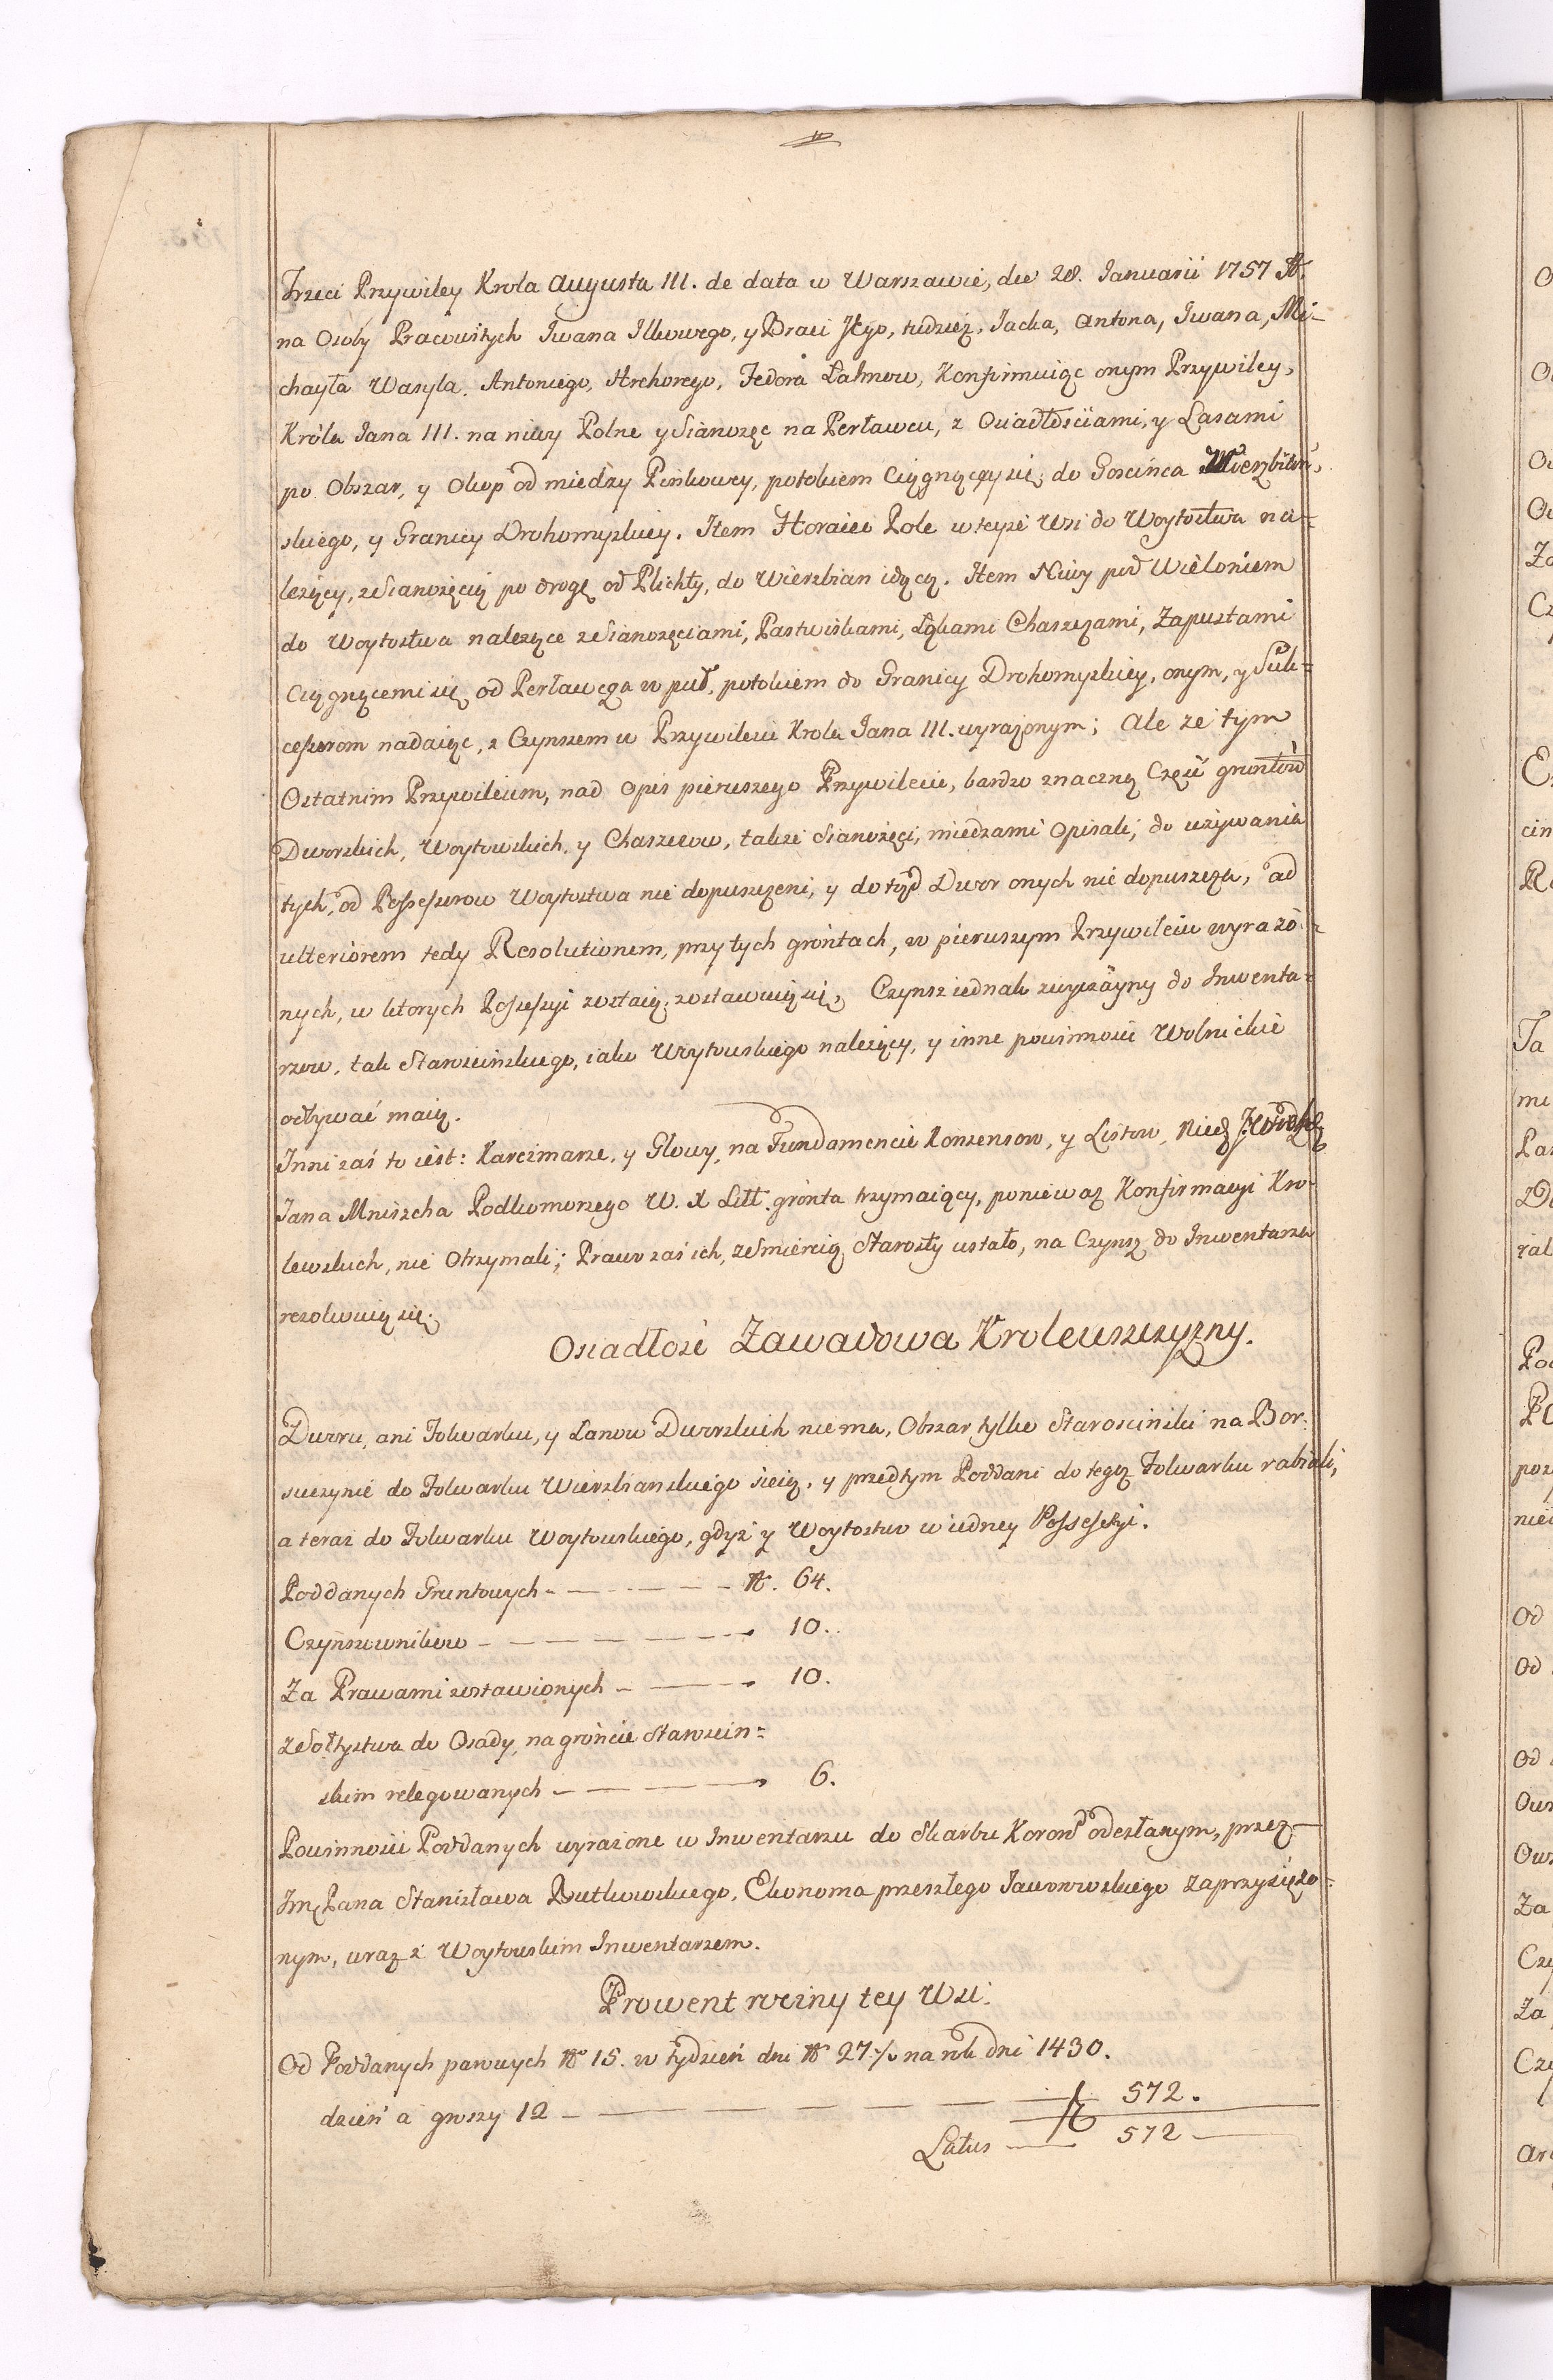 Trzeci Przywiley Krola Augusta III. de data w Warszawie, die 28. Januarii 1757 A.
na Osoby Pracowitych Iwana Ilkowego, y Braci Jego, tudzież, Jacka, Antona, Iwana, Mi-
chayła Wasyla, Antoniego, Hrehorego, Fedora Lahmow, Konfirmuiąc onym Przywiley,
Króla Jana III. na niwy Polne y Sianożęc na Perławcu, z Osiadłościami, y Lasami
po Obszar, y Okop od miedzy Pińkowey, potokiem Ciągnącey się, do Gościńca Wierzbian,
skiego, y Granicy Drohomyskiey. Item Horaiec Pole w teyże Wsi do Woytostwa na-
leżący, z Sianożęcią po drogę od Plichty, do Wierzbian idącą. Item Niwy pod Wieloniem
do Woytostwa należące z Sianożęciami, Pastwiskami, Łąkami Chaszczami, Zapustami
Ciągnącemi się od Perławcza w puł, potokiem do Granicy Drohomyskiey, onym, y Suk=
cessorom nadaiąc, z Czynszem w Przywileiu Krola Jana III. wyrażonym; Ale że tym
Ostatnim Przywileium, nad opis pierwszego Przywileiu, bardzo znaczną Część grontow
Dworskich, Woytowskich, y Chaszczow, także Sianożęci, miedzami opisali, do używania
tych, od Possessorow Woytostwa nie dopuszczeni, y dotąd Dwor onych nie dopuszcza, ad
ulteriorem tedy Resolutionem, przy tych gróntach, w pierwszym Przywileiu wyrażo=
nych, w ktorych Possessyi zostaią, zostawuią się, Czynsz iednak zwyczayny do Inwenta=
rzow, tak Starościńskiego, iako Woytowskiego należący, y inne powinności Wolnickie
odbywać maią.
Inni zaś to iest: Karczmarze, y Głowy, na Fundamencie Konsensow, y Listow, Nieg
Jana Mniszcha Podkomorzego W. X Litt. grónta trzymaiący, ponieważ Konfirmacyi Kro-
lewskich, nie Otrzymali; Prawo zaś ich, z Smiercią Starosty ustało, na Czynsz do Inwentarza
rezolwuią się.
Osiadłość Zawadowa Krolewszczyzny.
Dworu, ani Folwarku, y Łanow Dworskich niema, Obszar tylko Starościński na Bor=
suczynie do Folwarku Wierzbianskiego sieią, y przedtym Poddani do tegoż Folwarku rabiali,
a teraz do Folwarku Woytowskiego, gdyż y Woytostwo w iedney Possessyi.
Poddanych Gruntowych - - - - N. 64.
Czynszownikow - - - - 10.
Za Prawami zostawionych - - - 10.
z Sołtystwa do Osady, na gróncie Starościn=
skim relegowanych - - - - 6.
Powinności Poddanych wyrażone w Inwentarzu do Skarbu Koron odesłanym, przez
Jmć Pana Stanisława Rutkowskiego, Ekonoma przeszłego Jaworowskiego zaprzysiężo=
nym, wraz z Woytowskim Inwentarzem.
Prowent roczny tey Wsi.
Od Poddanych parowych No 15. w tydzień dni No 27 ½ na rok dni 1430.
dzień a groszy 12 - - - - - - - 572.
Latus - - 572